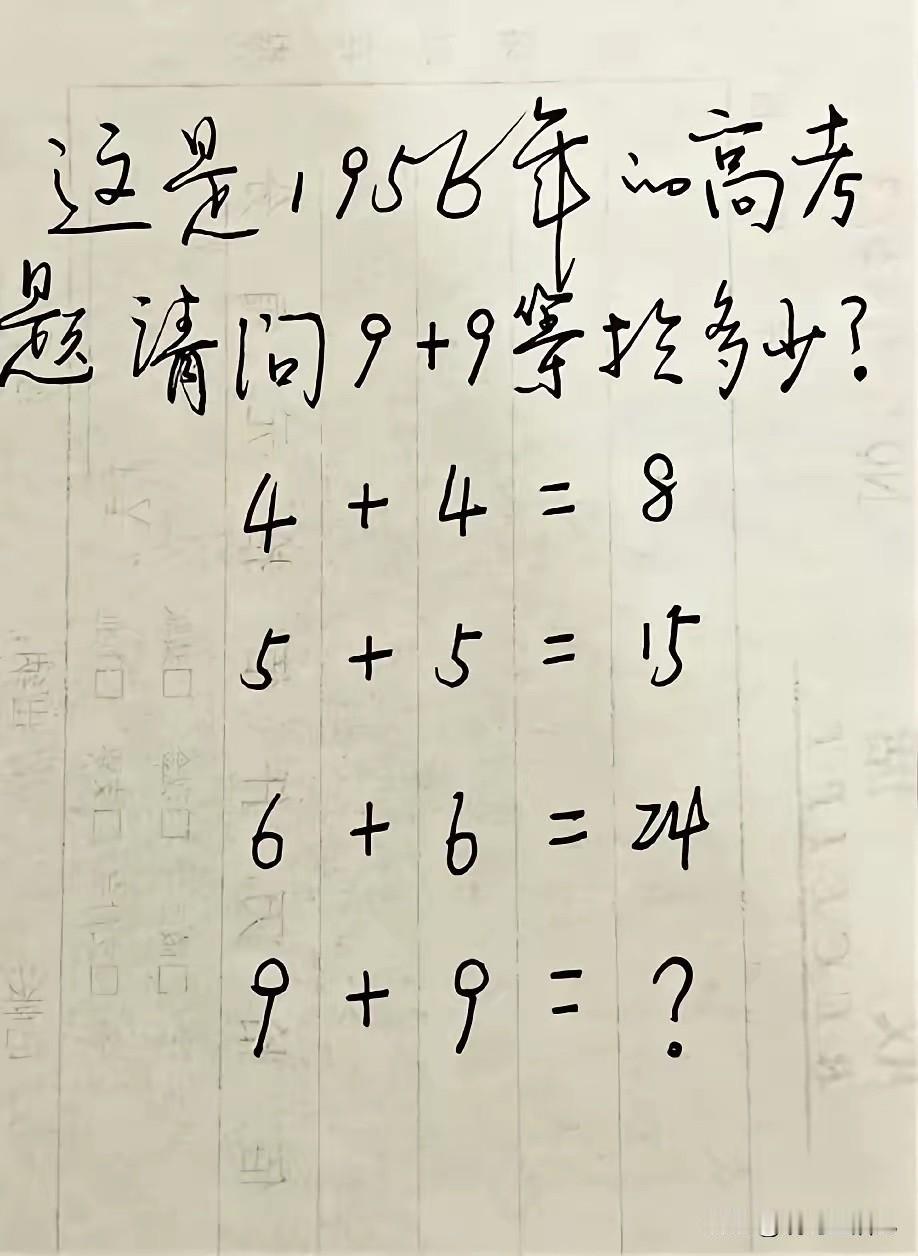 这是1956年的高考
题 请问9+9等於多少?
4 + 4 = 8
5 + 5 = 15
6 + 6 = 24
9 + 9 = ?